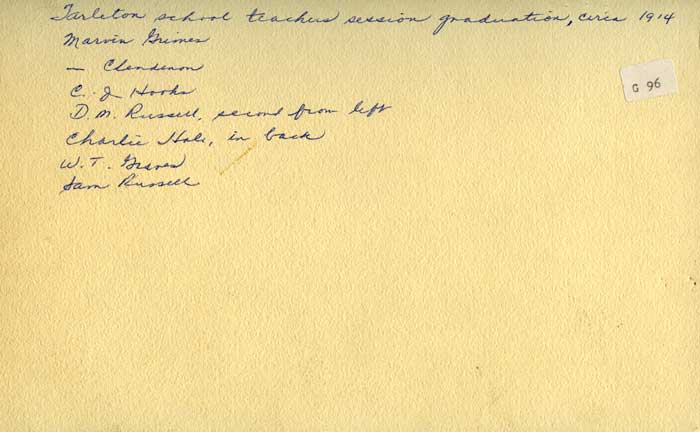 Tarleton school teachers session graduation, circa 1914
Marvin Grimes
— Clendenon
C. J Hooks
D. M. Russell, second from left
Charlie Hale, in back
W. T. Graves
Sam Russell
G 96